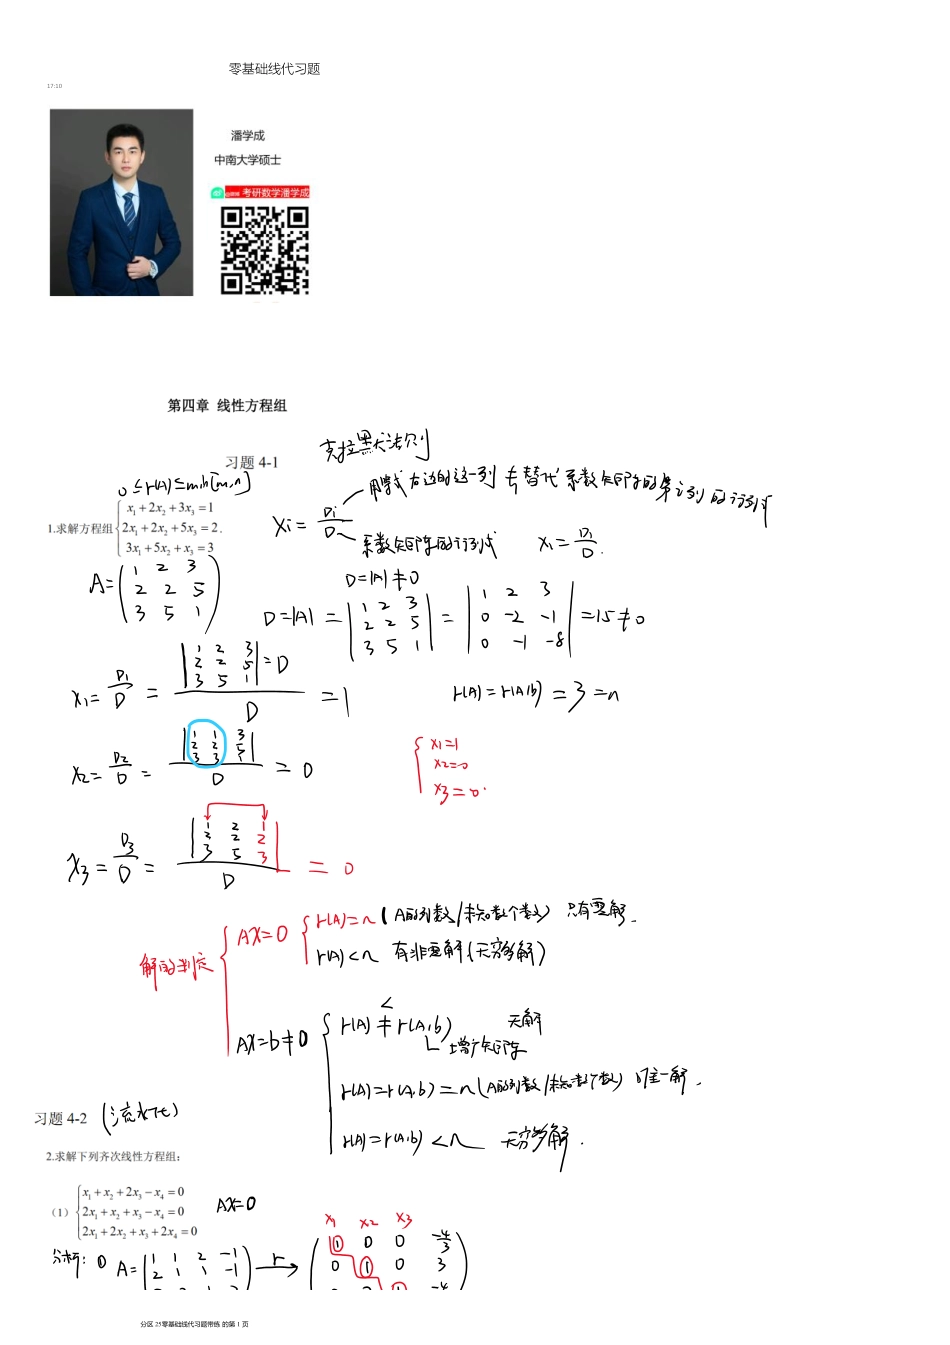 零基础线代习题
17:10
潘学成
中南大学硕士
考研数学潘学成
第四章 线性方程组
克拉默法则
习题 4-1
0≤r(A)≤min[m,n]
1.求解方程组 { x₁+2x₂+3x₃=1
2x₁+2x₂+5x₃=2 .
3x₁+5x₂+x₃=3
Xi = Di/D
用等式右边的这一列去替代系数矩阵的第i列的行列式
系数矩阵的行列式 X₁ = D₁/D.
D=|A|≠0
A= ( 1 2 3
2 2 5
3 5 1 )
D=|A| = | 1 2 3 | = | 1 2 3 | =15≠0
| 2 2 5 | | 0 -2 -1 |
| 3 5 1 | | 0 -1 -8 |
X₁ = D₁/D = | 1 2 3 | =D / D = 1
| 2 2 5 |
| 3 5 1 |
r(A)=r(A,b)=3=n
X₂ = D₂/D = | 1 1 3 | / D = 0
| 2 2 5 |
| 3 3 1 |
{ X₁=1
X₂=0
X₃=0.
X₃ = D₃/D = | 1 2 1 | / D = 0
| 2 2 2 |
| 3 5 3 |
解的判定
AX=0 { r(A)=n (A的列数/未知数个数) 只有零解.
r(A)<n 有非零解(无穷多解)
AX=b≠0 { r(A)≠r(A,b) 无解
<
增广矩阵
r(A)=r(A,b)=n(A的列数/未知数个数) 唯一解.
r(A)=r(A,b)<n 无穷多解.
习题 4-2 (流水代)
2.求解下列齐次线性方程组:
(1) { x₁+x₂+2x₃-x₄=0
2x₁+x₂+x₃-x₄=0
2x₁+2x₂+x₃+2x₄=0
AX=0
X₁ X₂ X₃
分析: ① A= ( 1 1 2 -1 ) r→ ( 1 0 0 -4/3 )
2 1 1 -1 0 1 0 3
分区 25零基础线代习题带练 的第 1 页